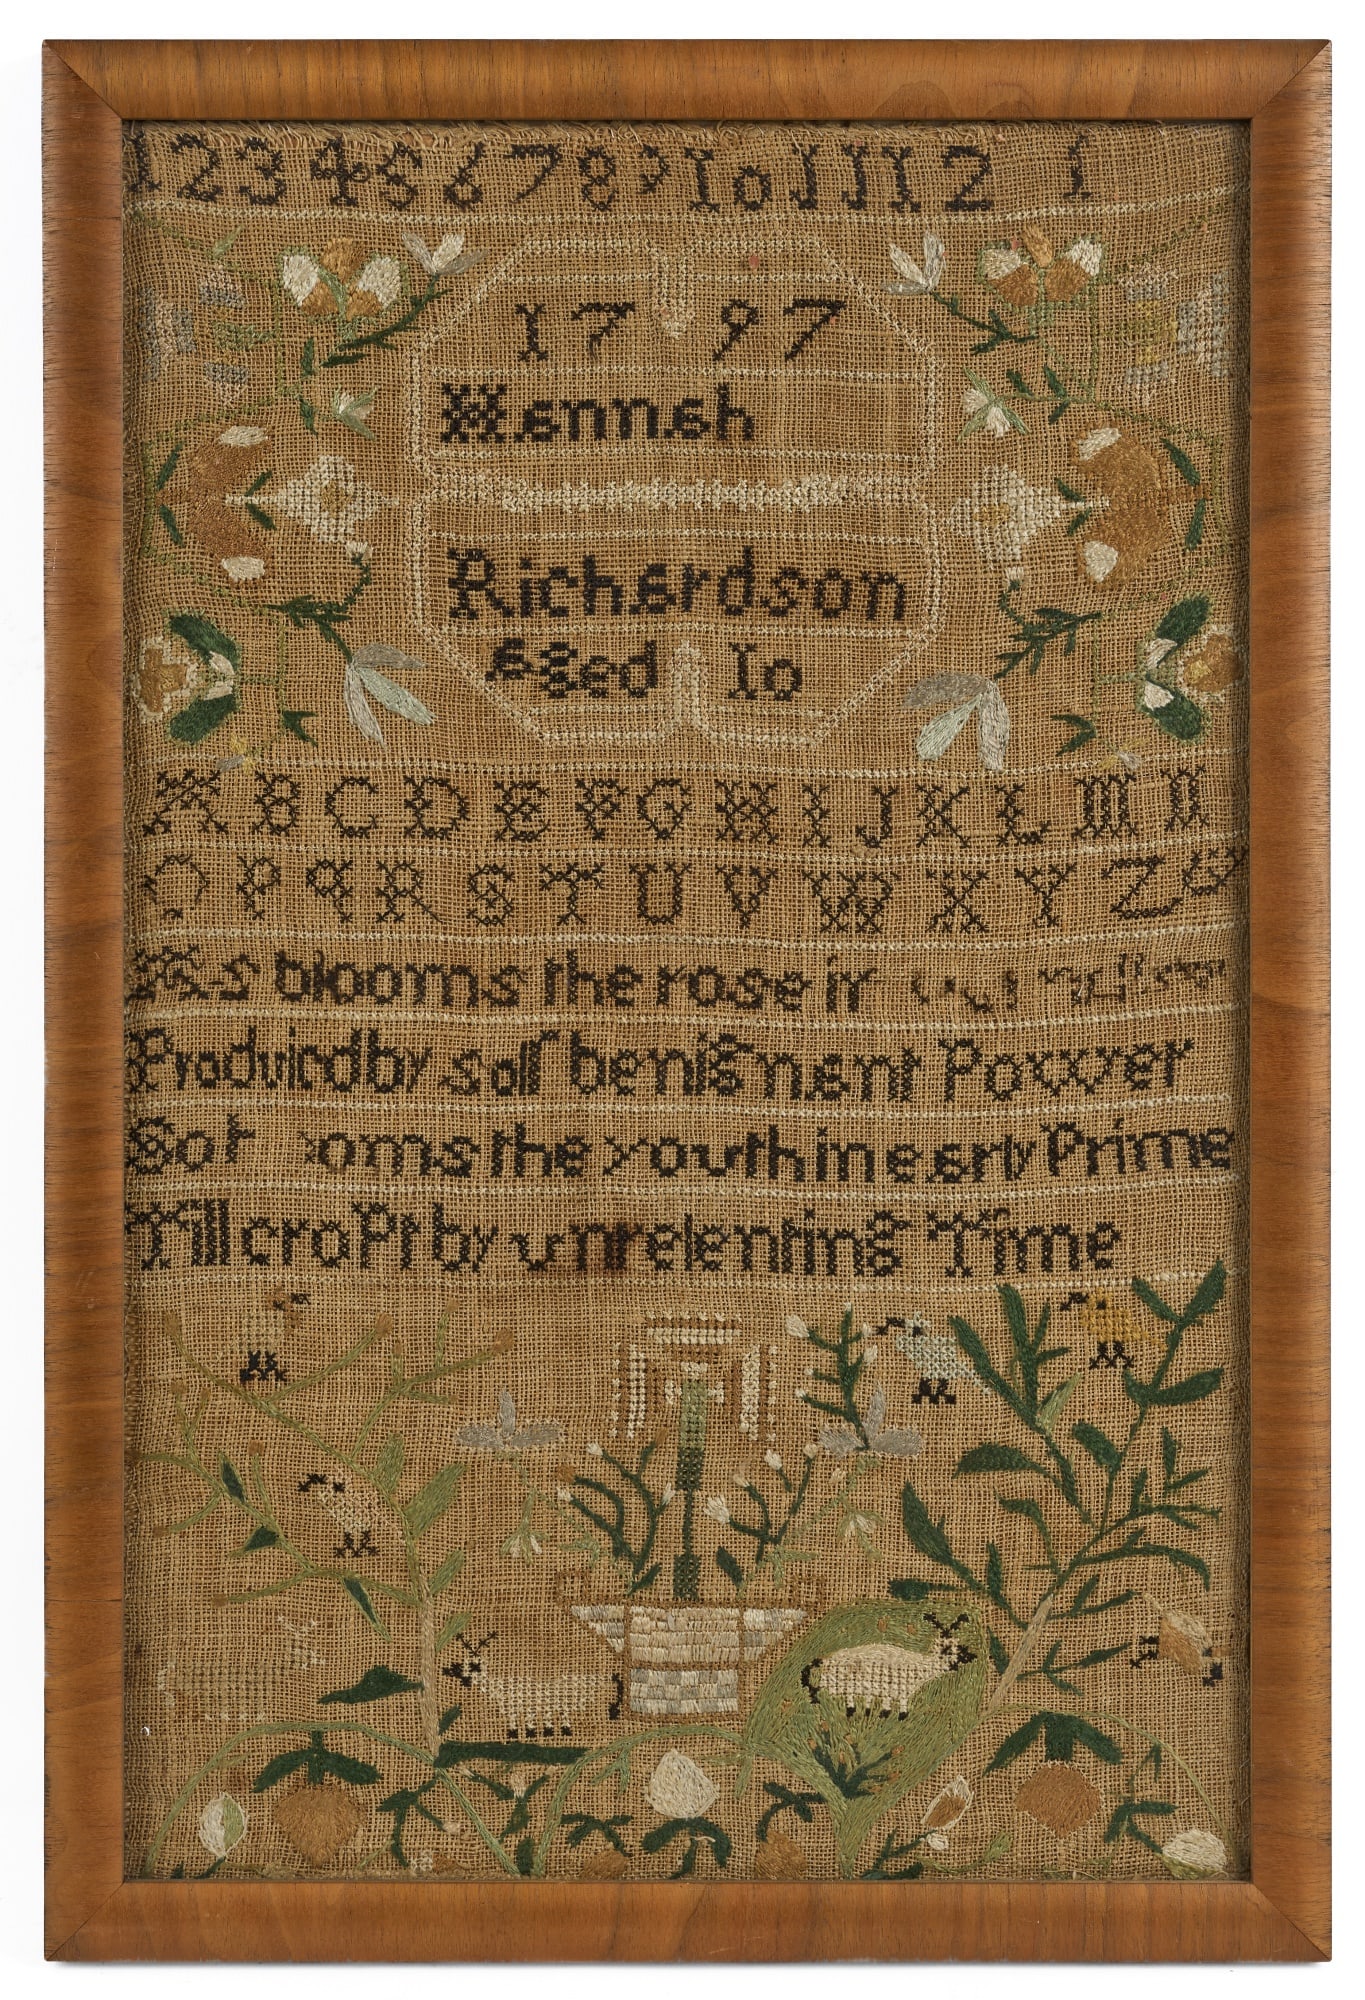 1 2 3 4 5 6 7 8 9 10 11 12 1
1797
Hannah
Richardson
aged 10
A B C D E F G H I J K L M N
O P q R S T U V W X Y Z &
As blooms the rose in
Producd by soft benignant Power
So the youth in early Prime
Till croPt by unrelenting Time